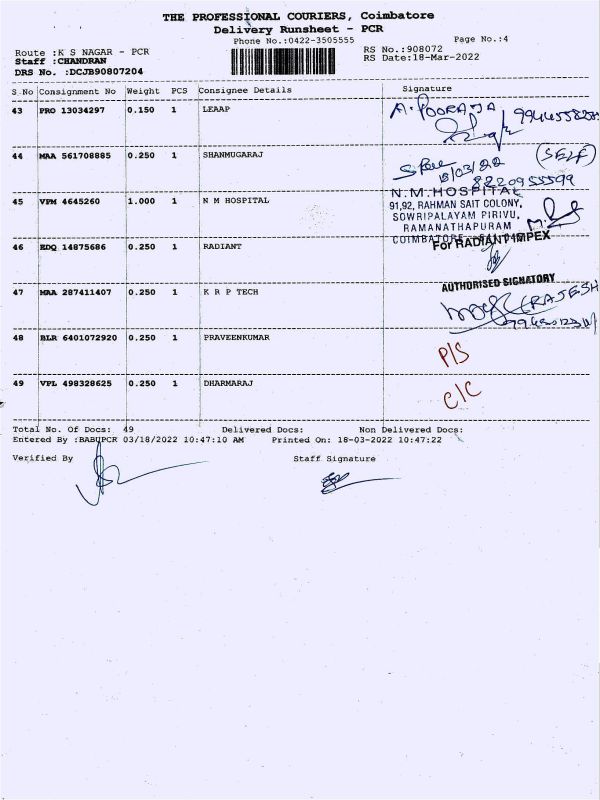 THE PROFESSIONAL COURIERS, Coimbatore
Delivery Runsheet - PCR
Phone No.:0422-3505555 Page No.:4
Route :K S NAGAR - PCR RS No.:908072
Staff :CHANDRAN RS Date:18-Mar-2022
DRS No. :DCJB90807204
S.No Consignment No Weight PCS Consignee Details Signature
43 PRO 13034297 0.150 1 LEAAP A. POORAJA
44 MAA 561708885 0.250 1 SHANMUGARAJ (SELF)
18/03/22
8220955599
45 VPM 4645260 1.000 1 N M HOSPITAL N.M.HOSPITAL
91,92, RAHMAN SAIT COLONY,
SOWRIPALAYAM PIRIVU,
RAMANATHAPURAM
COIMBATORE
46 EDQ 14875686 0.250 1 RADIANT For RADIANT IMPEX
AUTHORISED SIGNATORY
47 MAA 287411407 0.250 1 K R P TECH (RAJESH
48 BLR 6401072920 0.250 1 PRAVEENKUMAR P/S
49 VPL 498328625 0.250 1 DHARMARAJ C/C
Total No. Of Docs: 49 Delivered Docs: Non Delivered Docs:
Entered By :BABUPCR 03/18/2022 10:47:10 AM Printed On: 18-03-2022 10:47:22
Verified By Staff Signature